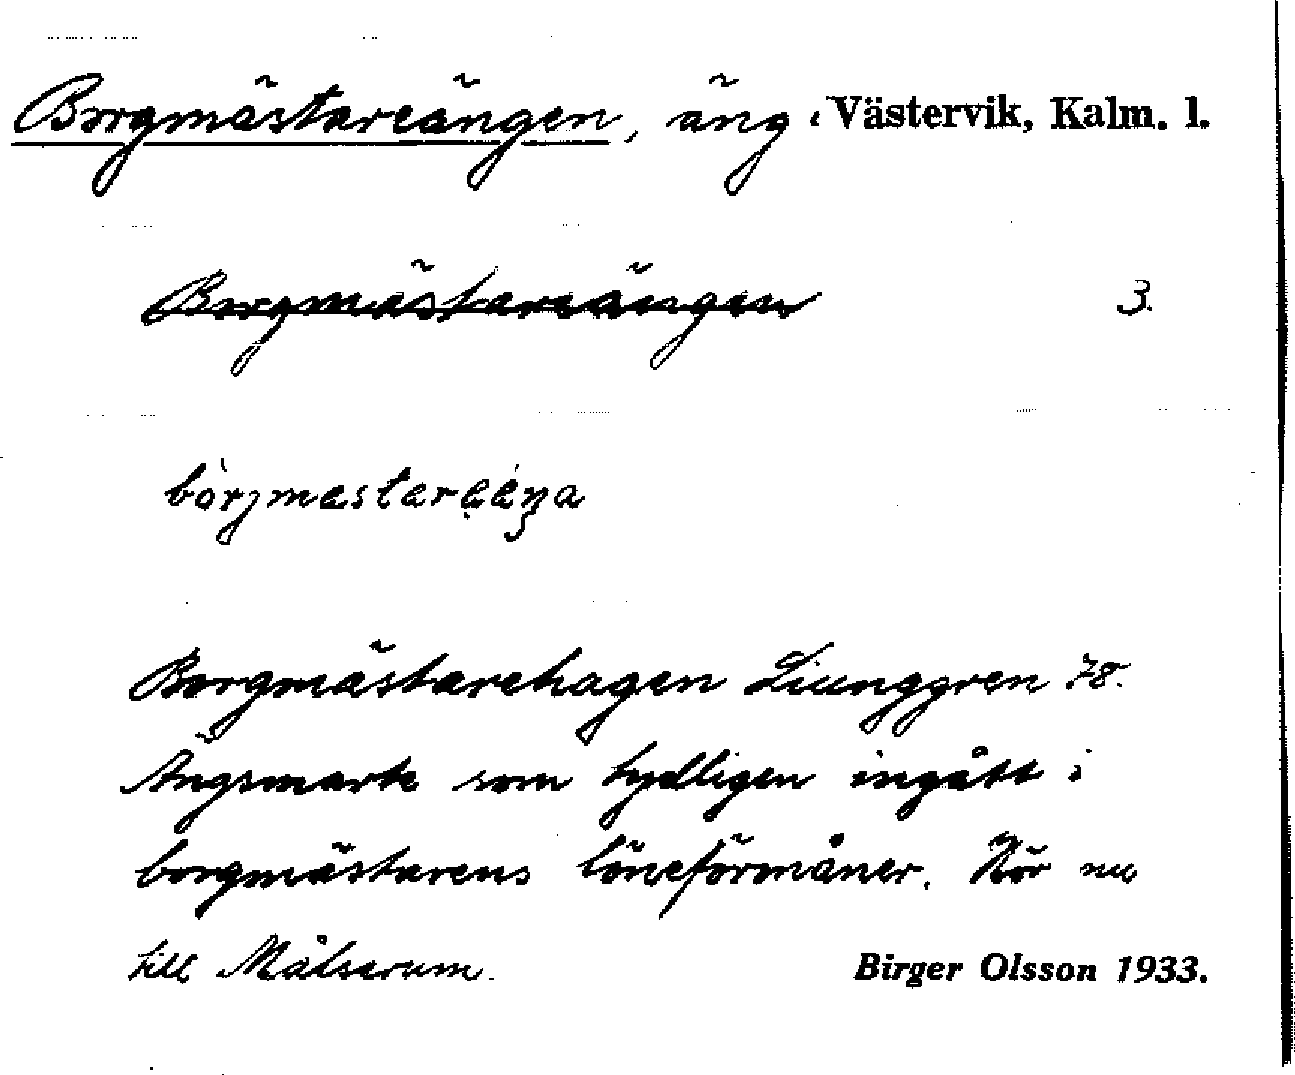 Borgmästareängen, äng. Västervik, Kalm. l.
Borgmästareängen 3.
bòrjmestareéŋa
Borgmästarehagen Liunggren 78.
Ängsmark som tydligen ingått i
borgmästarens löneförmåner. Hör nu
till Målserum. Birger Olsson 1933.